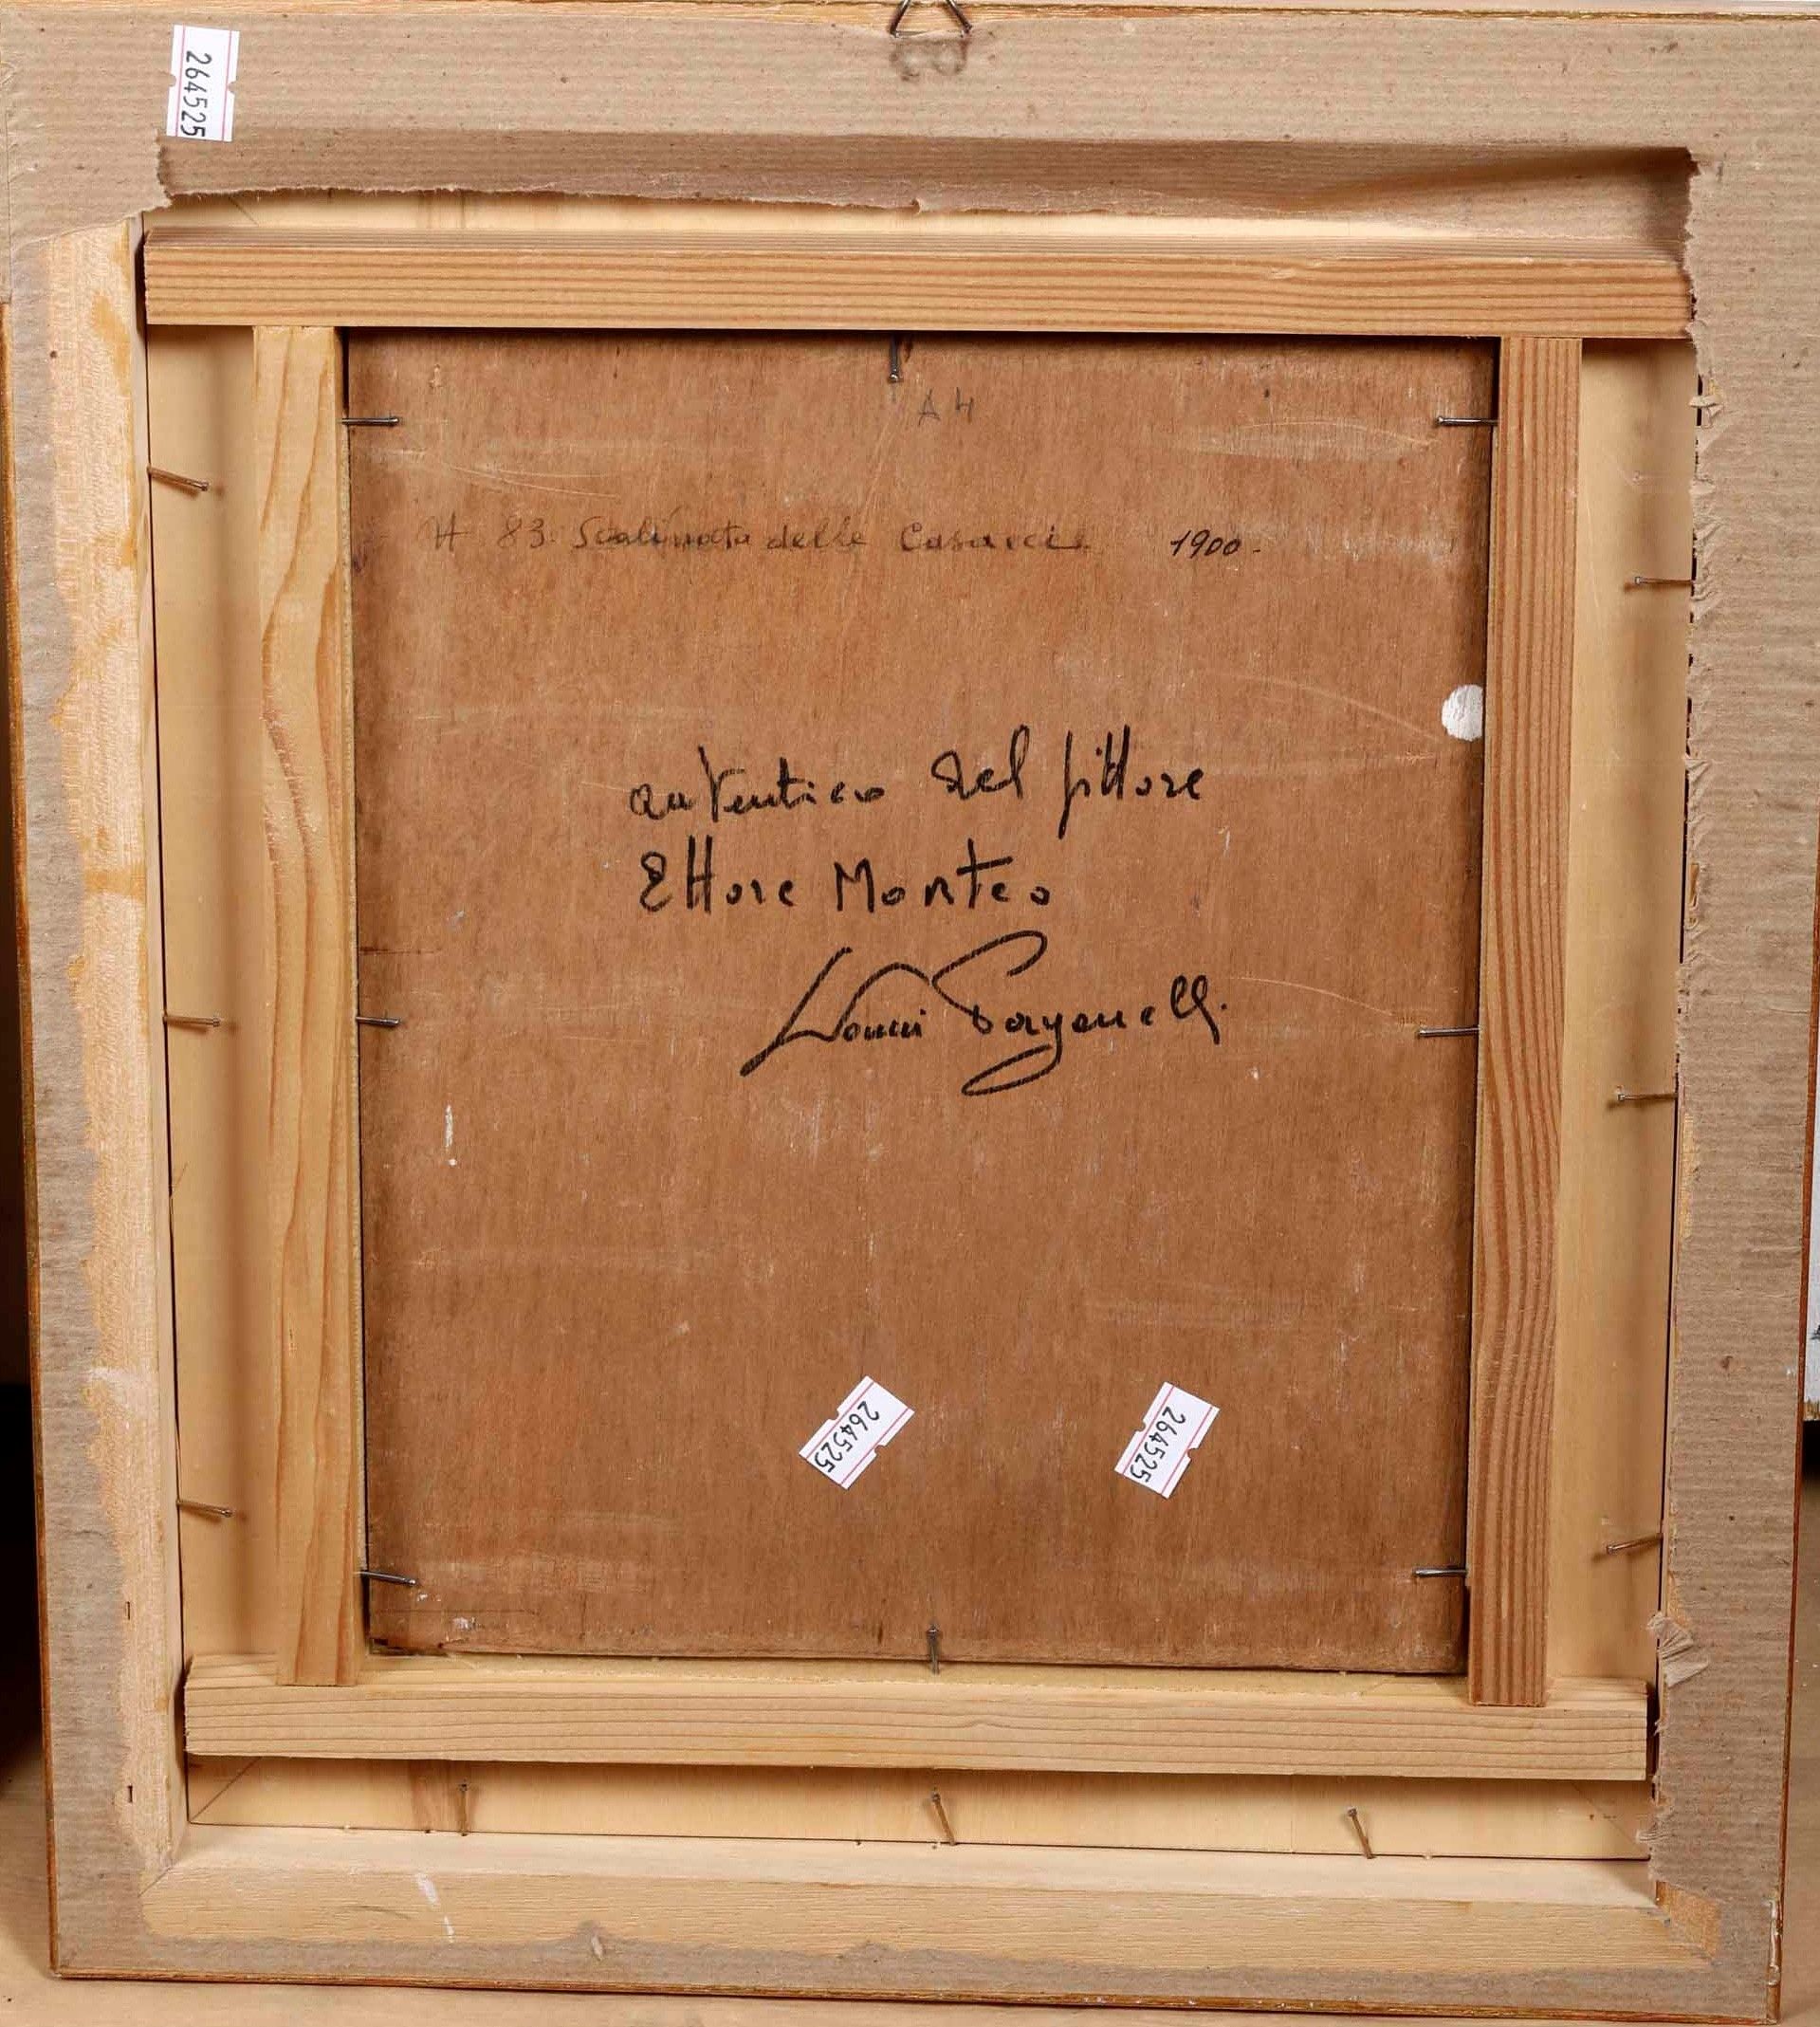 264525
A 4
H 83. Scalinata delle 1900.
autentico del pittore
Ettore Monteo
264525
264525